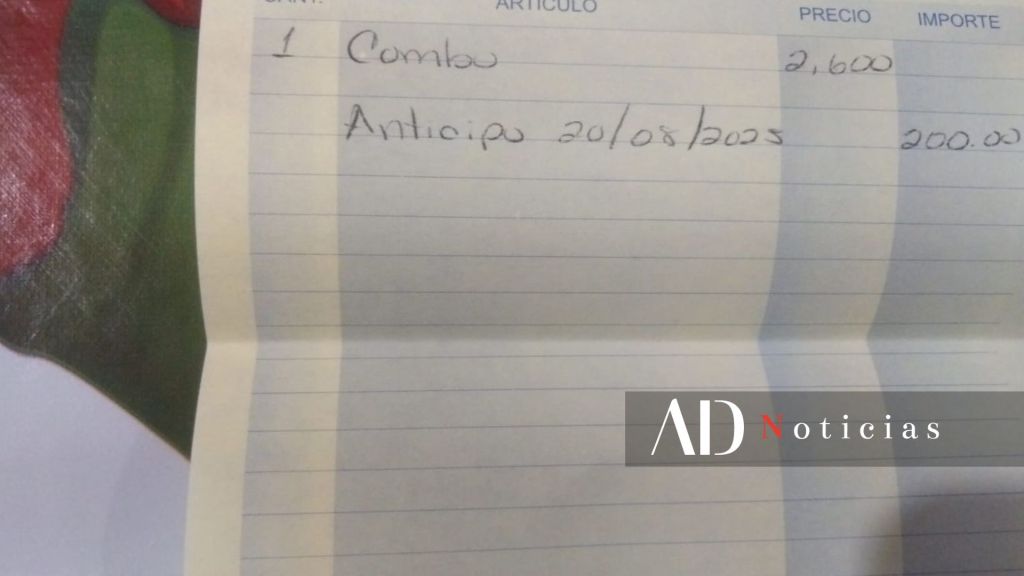 CANT. ARTICULO PRECIO IMPORTE
1 Combo 2,600
Anticipo 20/08/2025 200.00
AD Noticias